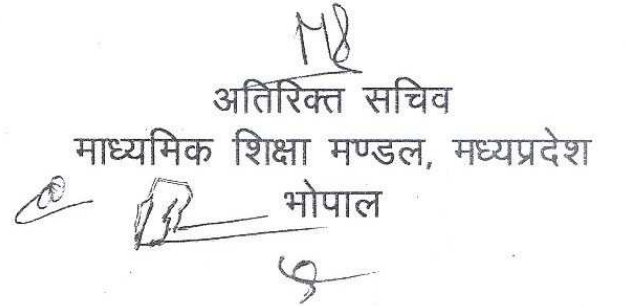 अतिरिक्त सचिव
माध्यमिक शिक्षा मण्डल, मध्यप्रदेश
भोपाल